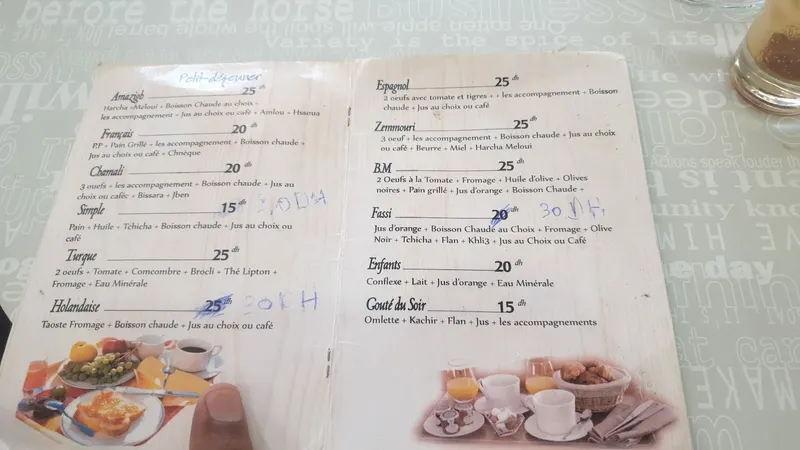 before the horse
Variety is the spice of life
Petit-déjeuner
Amazigh 25 dh
Harcha +Meloui + Boisson Chaude au choix +
les accompagnement + Jus au choix ou café + Amlou + Hssoua
Français 20 dh
P.P + Pain Grillé + les accompagnement + Boisson chaude +
Jus au choix ou café + Chnèque
Chamali 20 dh
3 ouefs + les accompagnement + Boisson chaude + Jus au
choix ou caféc + Bissara + Jben
Simple 15 dh 20DH
Pain + Huile + Tchicha + Boisson chaude + Jus au choix ou
café
Turque 25 dh
2 oeufs + Tomate + Comcombre + Brocli + Thé Lipton +
Fromage + Eau Minérale
Holandaise 25 dh 30DH
Taoste Fromage + Boisson chaude + Jus au choix ou café
Espagnol 25 dh
2 oeufs avec tomate et tigres + + les accompagnement + Boisson
chaude + Jus au choix ou café
Zemmouri 25 dh
3 oeuf + les accompagnement + Boisson chaude + Jus au choix
ou café + Beurre + Miel + Harcha Meloui
B.M 25 dh
2 Oeufs à la Tomate + Fromage + Huile d'olive + Olives
noires + Pain grillé + Jus d'orange + Boisson Chaude +
Fassi 20 dh 30DH
Jus d'orange + Boisson Chaude au Choix + Fromage + Olive
Noir + Tchicha + Flan + Khli3 + Jus au Choix ou Café
Enfants 20 dh
Conflexe + Lait + Jus d'orange + Eau Minérale
Gouté du Soir 15 dh
Omlette + Kachir + Flan + Jus + les accompagnements